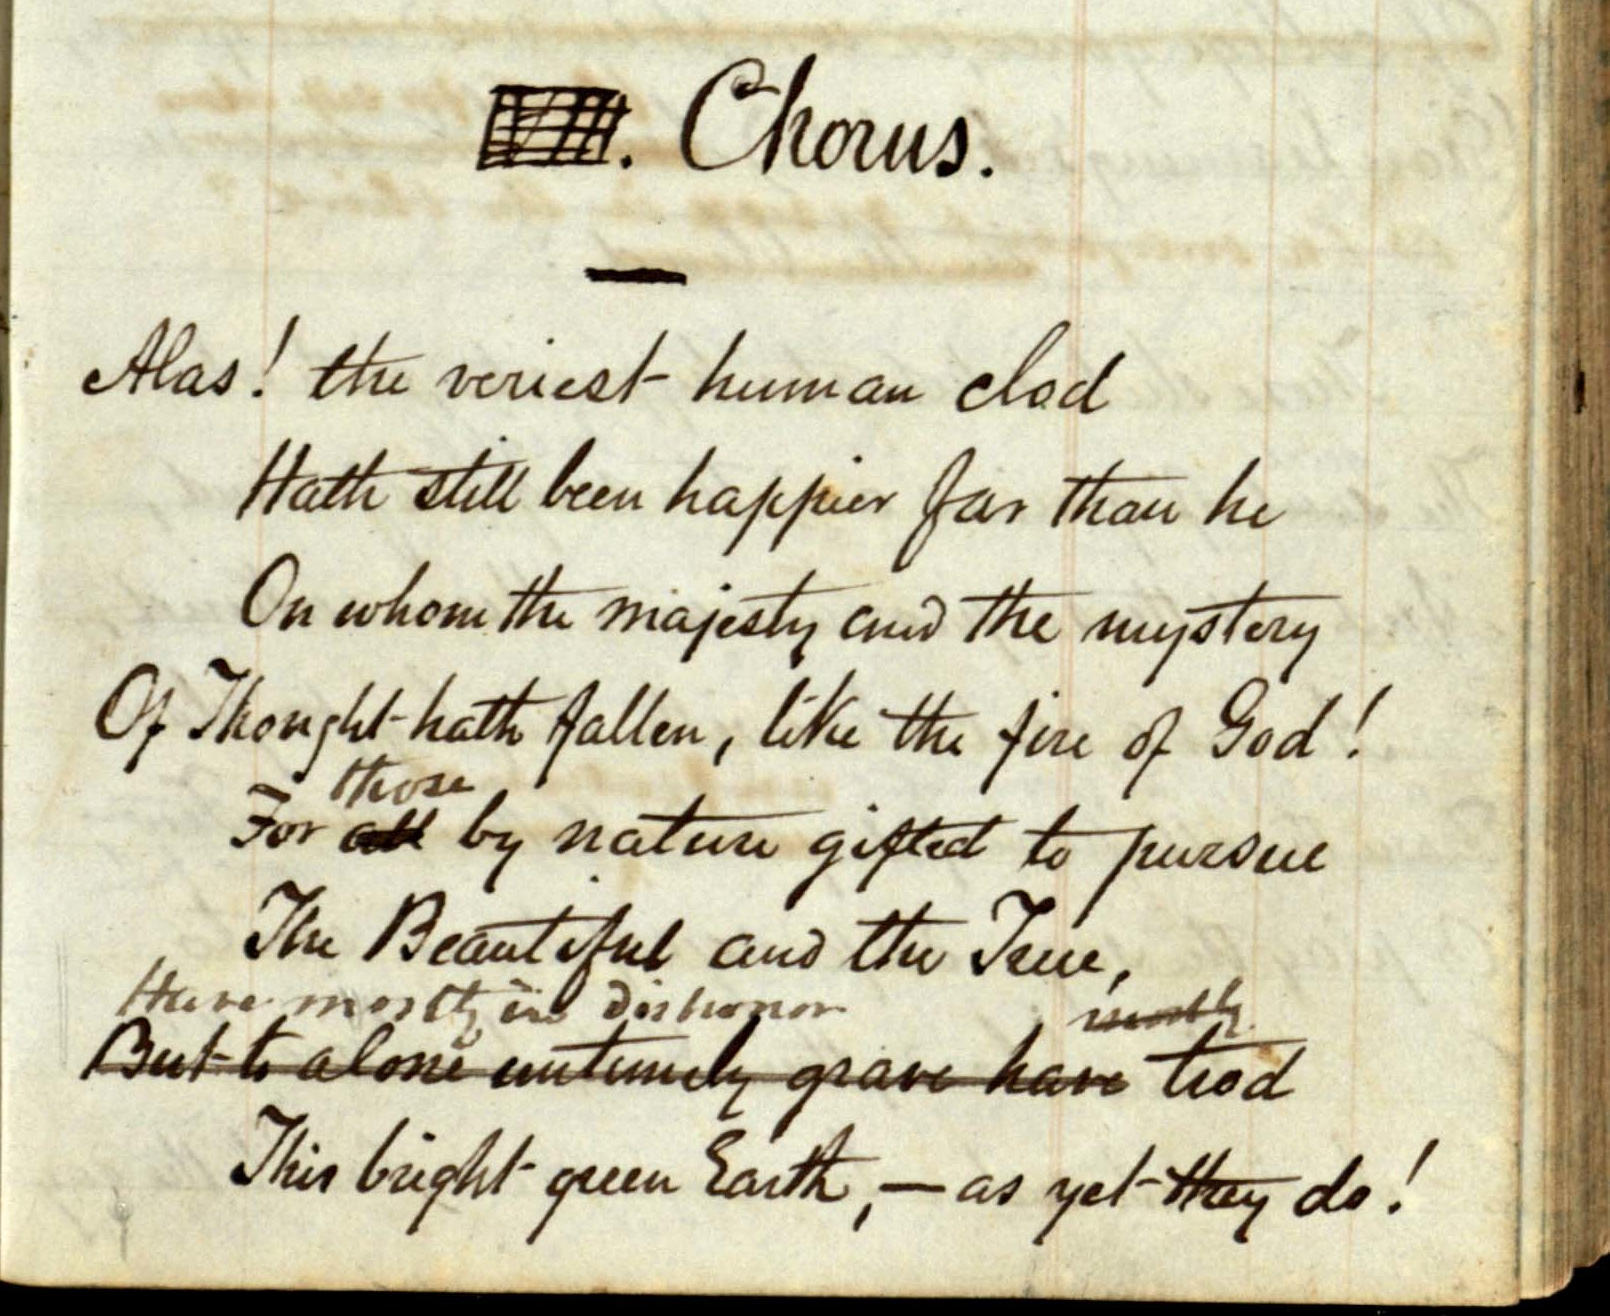 . Chorus.
Alas! the veriest human clod
Hath still been happier far than he
On whom the majesty and the mystery
Of Thought hath fallen, like the fire of God!
those
For all by nature gifted to pursue
The Beautiful and the True,
Have mostly in dishonor mostly
But to alone untimely grave have trod
This bright green Earth, — as yet they do!